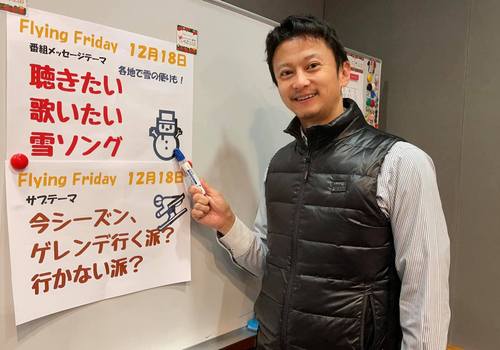 Flying Friday 12月18日
番組メッセージテーマ
聴きたい
各地で雪の便りも！
歌いたい
雪ソング
Flying Friday 12月18日
サブテーマ
今シーズン、
ゲレンデ行く派？
行かない派？